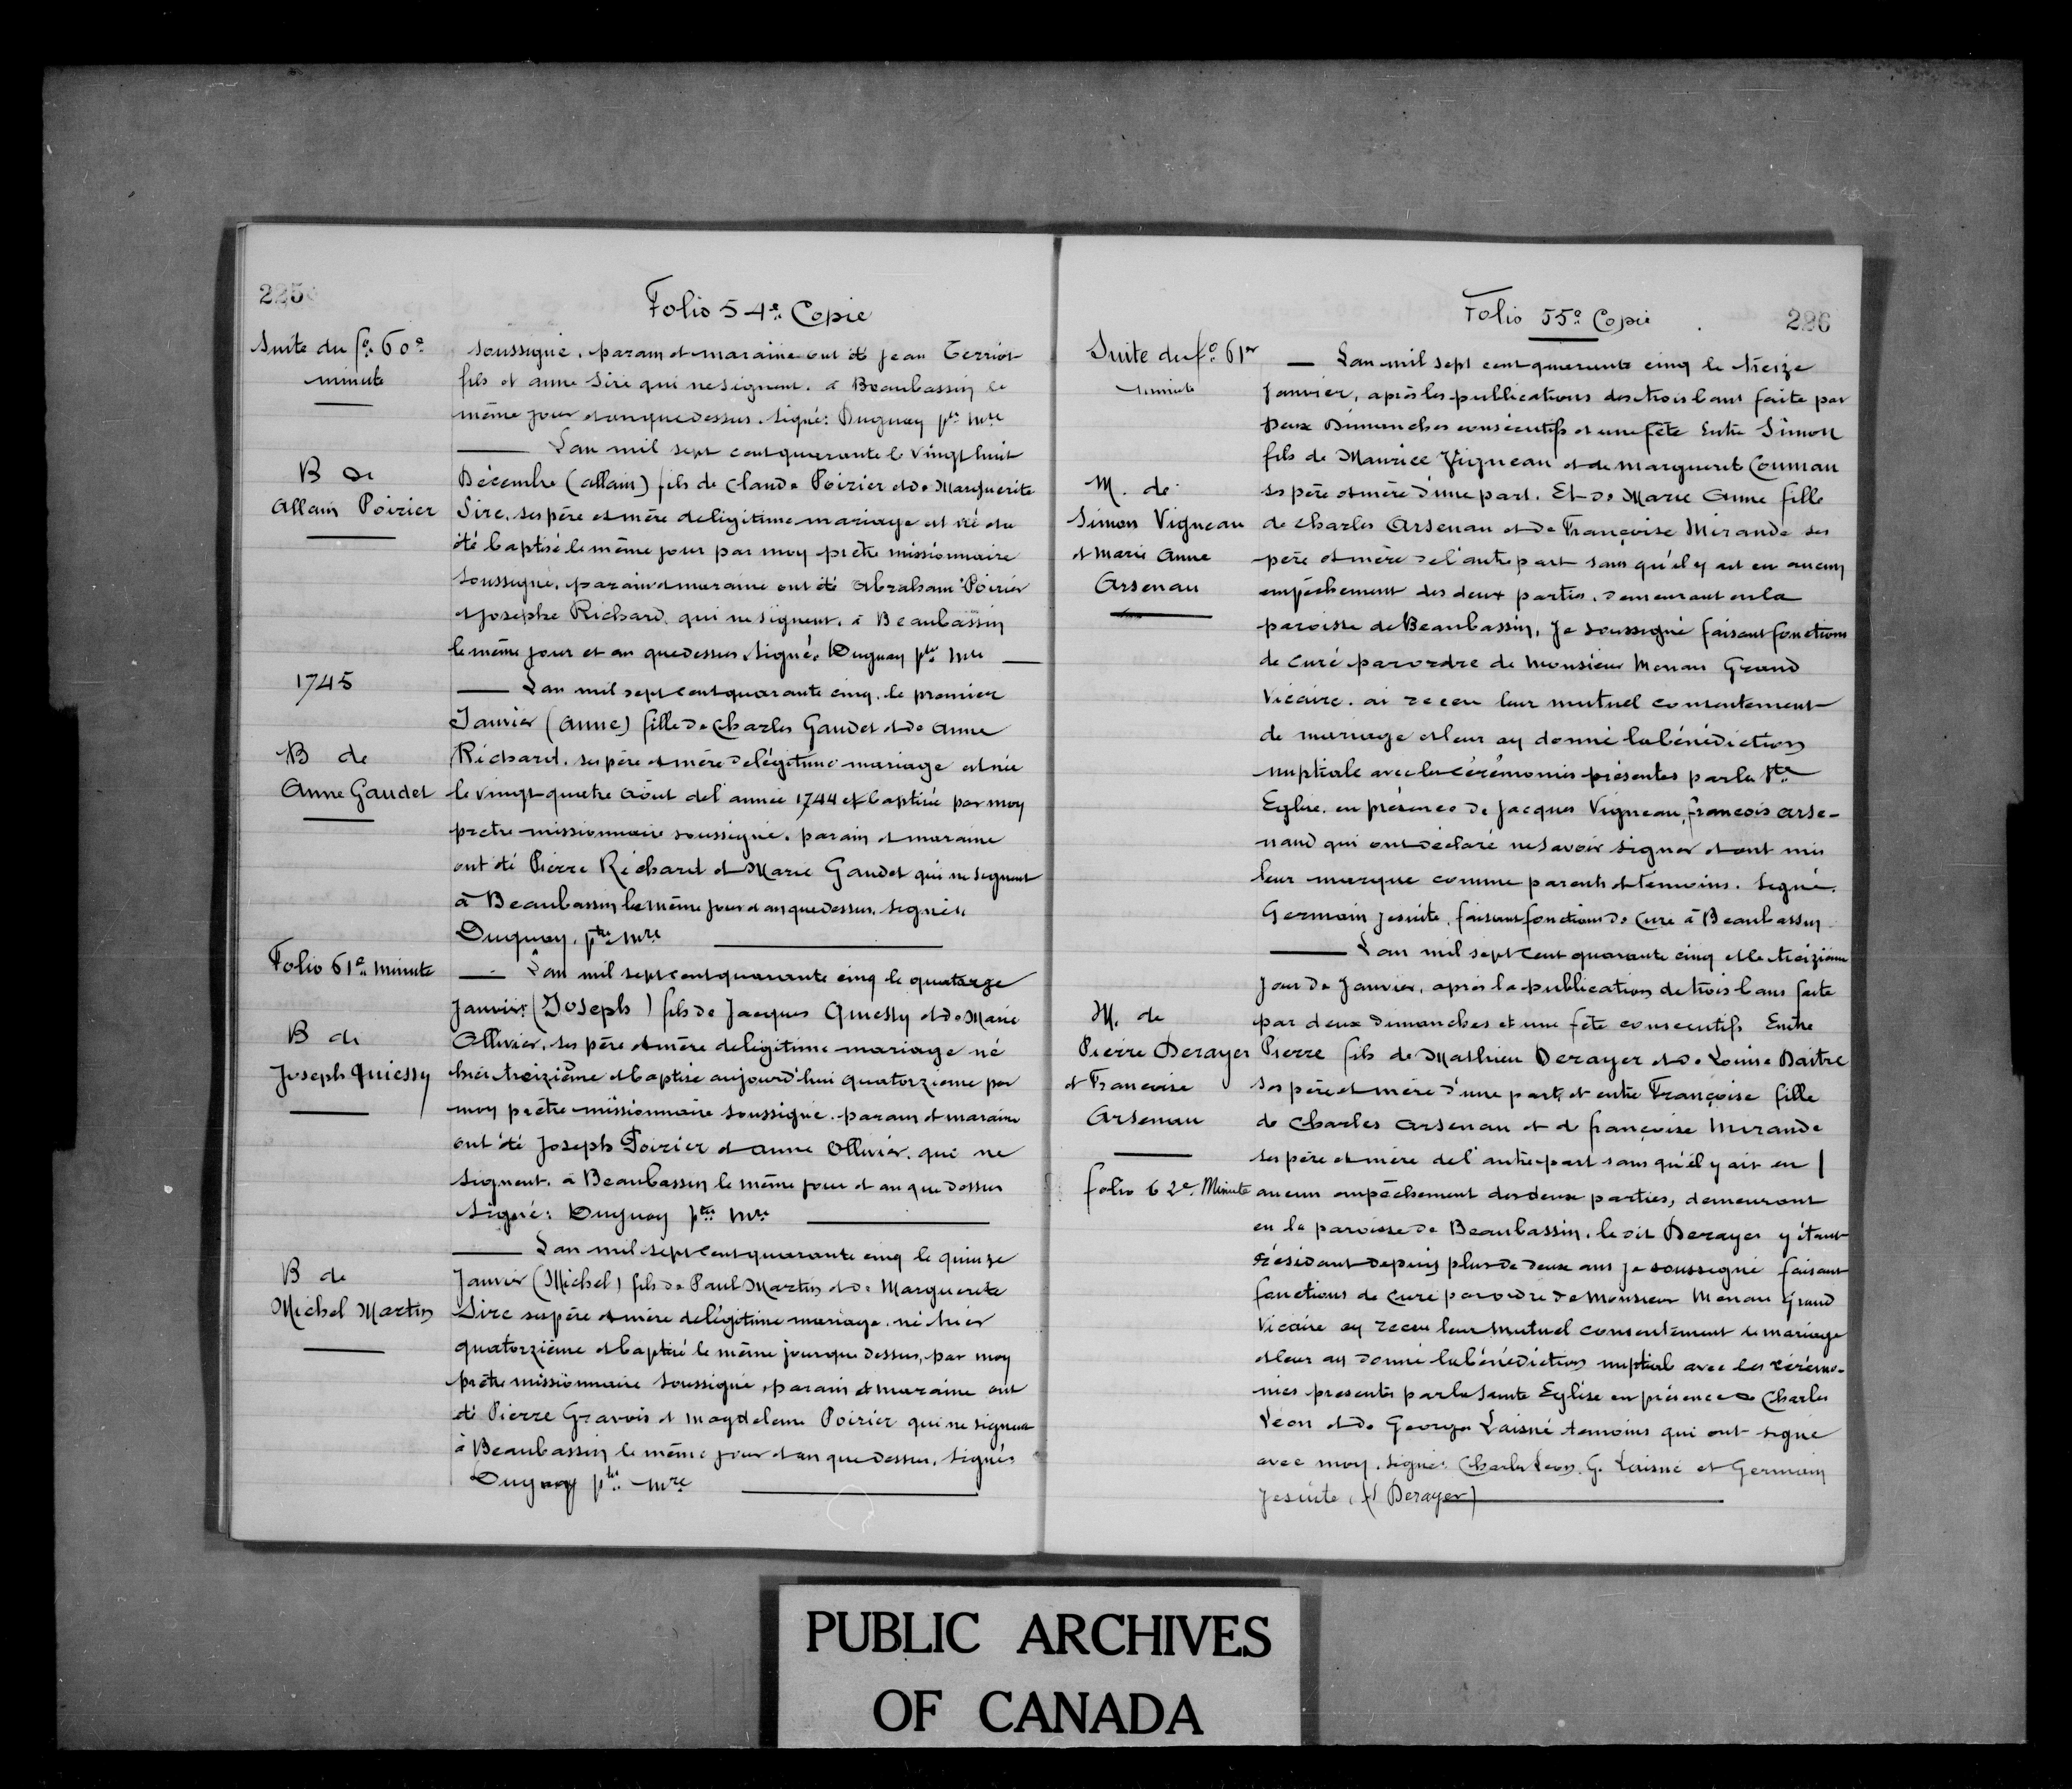 225
Folio 54e. Copie
Suite du fo. 60e
minute
soussigné, parain et maraine ont été Jean Terriot
fils et anne Siré qui ne signent. à Beaubassin le
même jour et an que dessus. Signé: Duguay ptre Mre
L'an mil sept cent quarante le vingt huit
B de
Allain Poirier
Décembre (allain) fils de Claude Poirier et de Marguerite
Sire, ses père et mère de légitime mariage est né et a
été baptisé le même jour par moy prêtre missionnaire
soussigné, parain et maraine ont été Abraham Poirier
et Josephe Richard, qui ne signent, à Beaubassin
le même jour et an que dessus. Signé. Duguay ptre Mre
1745
L'an mil sept cent quarante cinq, le premier
Janvier (Anne) fille de Charles Gaudet et de Anne
B de
Anne Gaudet
Richard, ses père et mère de légitime mariage est née
le vingt quatre Août de l'année 1744 et baptisé par moy
prêtre missionnaire soussigné, parain et maraine
ont été Pierre Richard et Marie Gaudet qui ne signent
à Beaubassin le même jour et an que dessus. Signé.
Duguay, ptre Mre
Folio 61e. minute
L'an mil sept cent quarante cinq le quatorze
Janvier (Joseph) fils de Jacques Quessy et de Marie
B de
Joseph Quiessy
Ollivier, ses père et mère de légitime mariage né
hier treizième et baptisé aujourd'hui quatorzieme par
moy prêtre missionnaire soussigné. parain et maraine
ont été Joseph Poirier et anne Ollivier, qui ne
signent, à Beaubassin le même jour et an que dessus
Signé: Duguay ptre Mre
L'an mil sept cent quarante cinq le quinze
B de
Michel Martin
Janvier (Michel) fils de Paul Martin et de Marguerite
Sire ses père et mère de légitime mariage, né hier
quatorzième et baptisé le même jour que dessus, par moy
prêtre missionnaire soussigné, parain et maraine ont
été Pierre Gravois et Magdeleine Poirier qui ne signent
à Beaubassin le même jour et an que dessus, Signé.
Duguay ptre Mre
Folio 55e Copie
226
Suite du fo. 61er
minute
L'an mil sept cent quarante cinq le treize
Janvier, après les publications des trois bans faite par
Deux Dimanches consécutifs et une fête Entre Simon
fils de Maurice Vigneau et de Marguerit Couman
M. de
Simon Vigneau
et Marie Anne
Arsenau
ses père et mère d'une part. Et de Marie Anne fille
de Charles Arsenau et de Françoise Mirande ses
père et mère de l'autre part sans qu'il y ait eu aucun
empêchement des deux parties, demeurant en la
paroisse de Beaubassin, Je soussigné faisant fonctions
de curé par ordre de Monsieur Menau Grand
Vicaire, ai receu leur mutuel consentement
de mariage et leur ay donné la bénédiction
nuptiale avec les cérémonies présentes par la Ste
Eglise, en présence de Jacques Vigneau, francois Arse-
naud qui ont déclaré ne savoir signer et ont mis
leur marque comme parents et témoins. Signé.
Germain Jesuite, faisant fonctions de Curé à Beaubassin
L'an mil sept cent quarante cinq et le treizième
Jour de Janvier, après la publication de trois bans faite
M. de
Pierre Derayer
et Francoise
Arsenau
par deux dimanches et une fête consecutifs Entre
Pierre fils de Mathieu Derayer et de Louise Daitre
ses père et mère d'une part, et entre Françoise fille
de Charles Arsenau et de françoise Mirande
ses père et mère de l'autre part sans qu'il y ait eu
folio 62e. Minute
aucun empêchement des deux parties, demeurant
en la paroisse de Beaubassin, le dit Derayer y étant
résidant depuis plus de deux ans je soussigné faisant
fonctions de curé par ordre de Monsieur Menau Grand
Vicaire ay receu leur mutuel consentement de mariage
et leur ay donné la bénédiction nuptiale avec les cérémo-
nies presentes par la Sainte Eglise en présence de Charles
Léon et de Georges Laisné temoins qui ont signé
avec moy. signé: Charles Léon, G. Laisné et Germain
Jesuite (Derayer)
PUBLIC ARCHIVES
OF CANADA